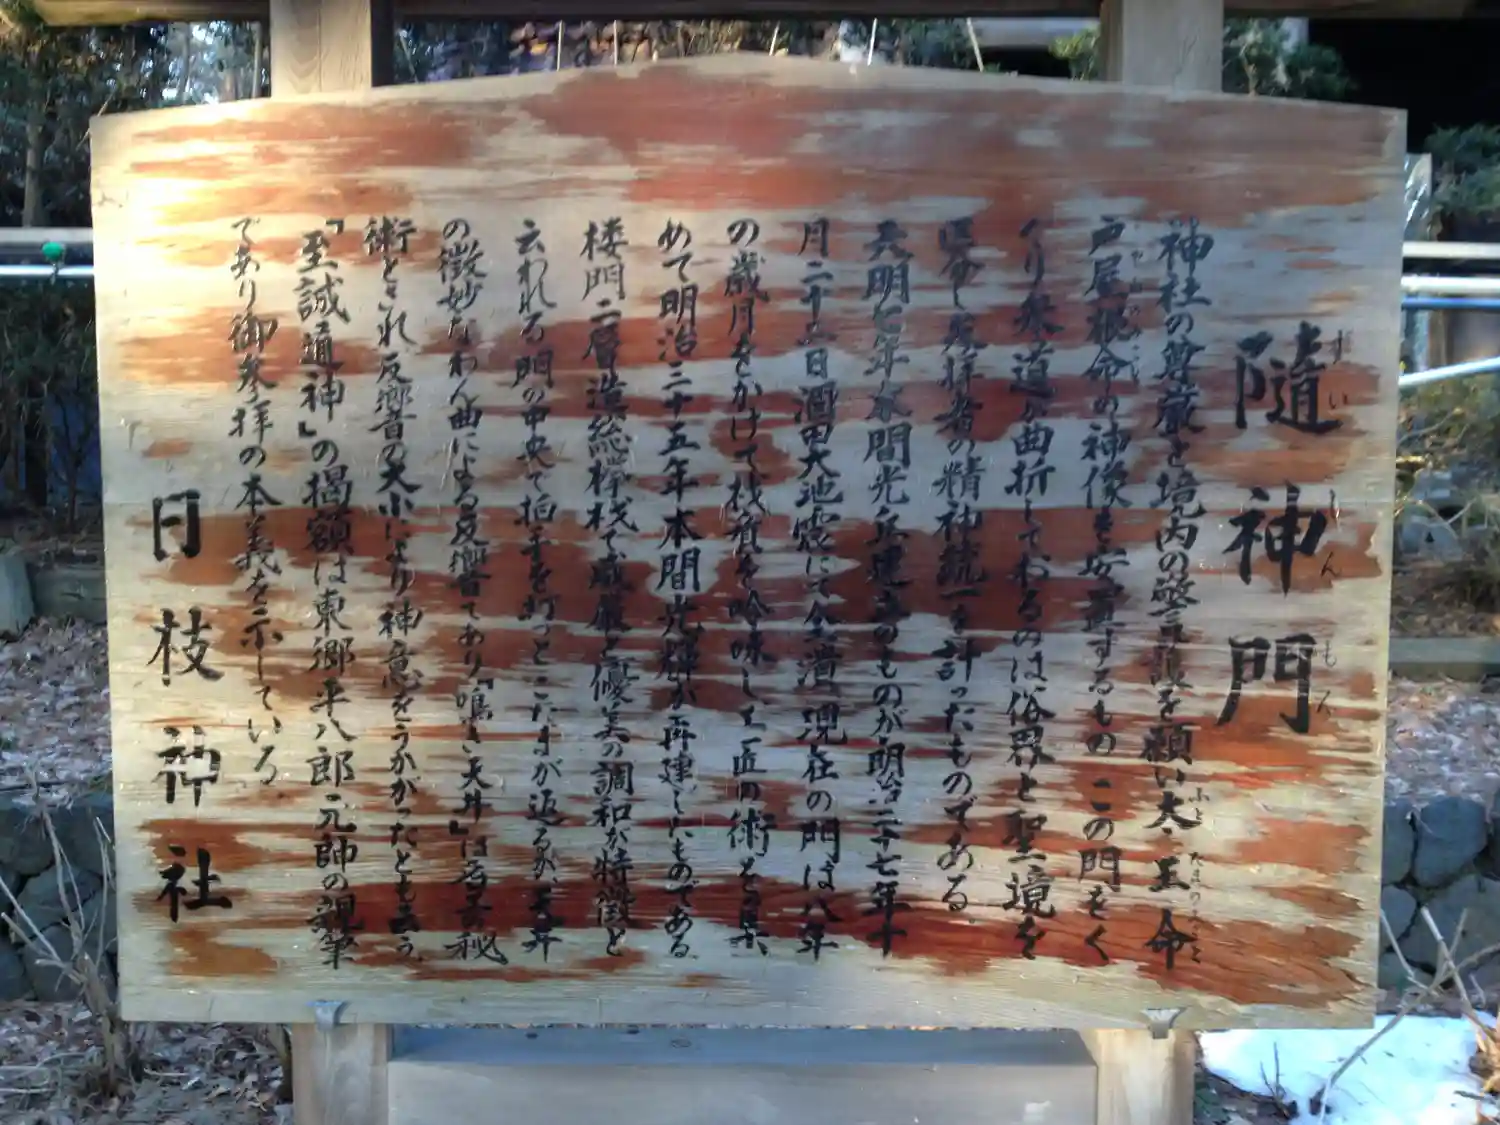 隨神門
ずいしんもん
神社の尊厳と境内の警護を願い太玉命
ふとたまのみこと
戸屋根命の神像を安置するもの この門をく
ぐり参道が曲折しておるのは俗界と聖境を
区分し参拝者の精神統一を計ったものである
天明七年本間光丘建立のものが明治二十七年十
月二十二日酒田大地震にて全潰 現在の門は八年
の歳月をかけて材質を吟味し工匠の術を集
めて明治三十五年本間光輝が再建したものである
楼門二層造総欅材で威厳と優美の調和が特徴と
云われる門の中央で拍手を打つとこだまが返るが、天井
の微妙なわん曲による反響であり『鳴き天井』は名匠秘
術とされ反響音の大小により神意をうかがったとも云う
『至誠通神』の掲額は東郷平八郎元帥の親筆
であり御参拝の本義を示している
日枝神社